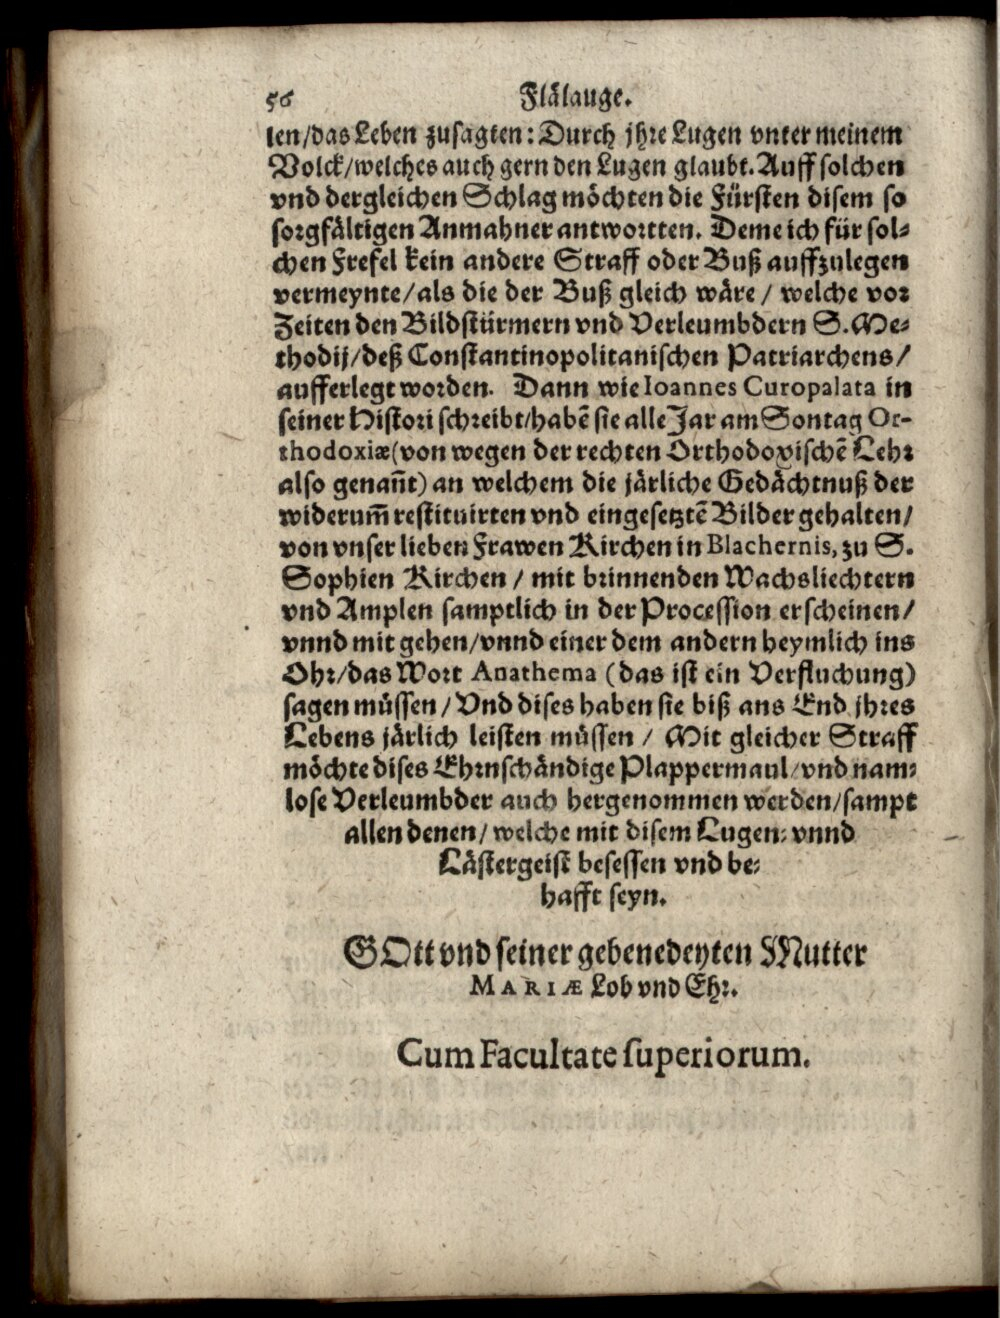 56 Flälauge.
len/das Leben zusagten: Durch jhre Lugen vnter meinem
Volck/welches auch gern den Lugen glaubt. Auff solchen
vnd dergleichen Schlag möchten die Fürsten disem so
sorgfältigen Anmahner antwortten. Deme ich für sol⸗
chen Frefel kein andere Straff oder Buß auffzulegen
vermeynte/als die der Buß gleich wäre / welche vor
Zeiten den Bildstürmern vnd Verleumbdern S. Me⸗
thodij/deß Constantinopolitanischen Patriarchens/
aufferlegt worden. Dann wie Ioannes Curopalata in
seiner Histori schreibt/habē sie alle Jar am Sontag Or-
thodoxiæ (von wegen der rechten Orthodoxischē Lehr
also genañt) an welchem die järliche Gedächtnuß der
widerum̄ restituirten vnd eingesetztē Bilder gehalten/
von vnser lieben Frawen Kirchen in Blachernis, zu S.
Sophien Kirchen / mit brinnenden Wachsliechtern
vnd Amplen samptlich in der Procession erscheinen/
vnnd mit gehen/vnnd einer dem andern heymlich ins
Ohr/das Wort Anathema (das ist ein Verfluchung)
sagen müssen / Vnd dises haben sie biß ans End jhres
Lebens järlich leisten müssen / Mit gleicher Straff
möchte dises Ehrnschändige Plappermaul/vnd nam⸗
lose Verleumbder auch hergenommen werden/sampt
allen denen/welche mit disem Lugen⸗ vnnd
Lästergeist besessen vnd be⸗
hafft seyn.
GOtt vnd seiner gebenedeyten Mutter
MARIÆ Lob vnd Ehr.
Cum Facultate superiorum.